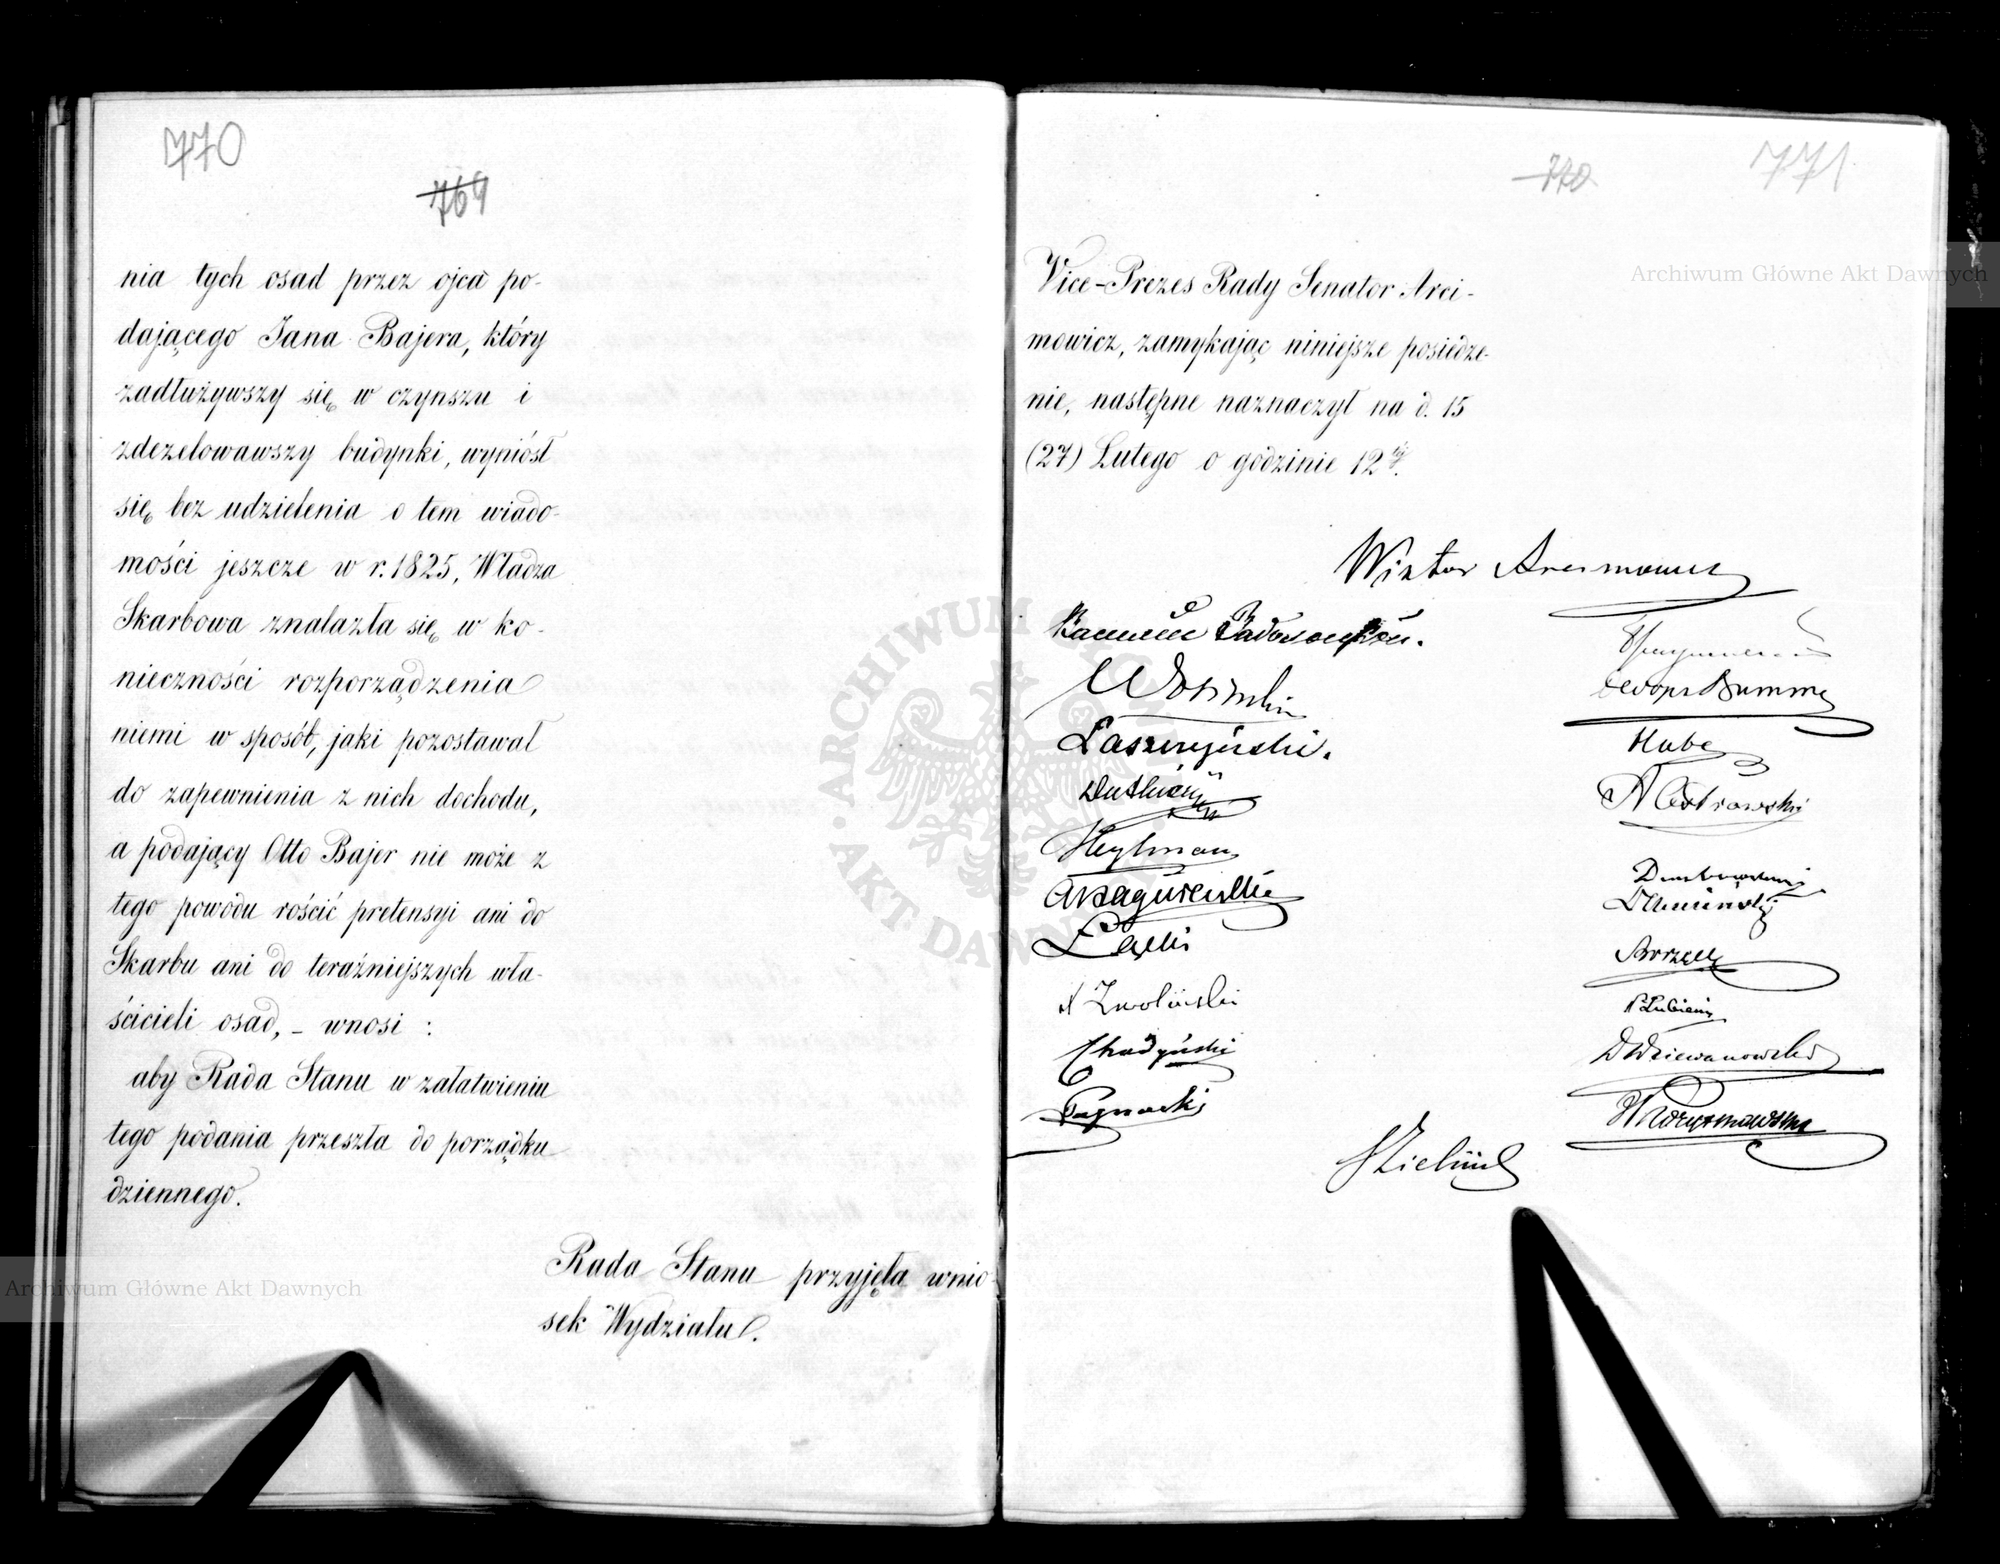 770
769
nia tych osad przez ojca po-
dającego Jana Bajera, który
zadłużywszy się w czynszu i
zdezelowawszy budynki, wyniósł
się bez udzielenia o tem wiado-
mości jeszcze w r. 1825, Władza
Skarbowa znalazła się w ko-
nieczności rozporządzenia
niemi w sposób, jaki pozostawał
do zapewnienia z nich dochodu,
a podający Otto Bajer nie może z
tego powodu rościć pretensyi ani do
Skarbu ani do teraźniejszych wła-
ścicieli osad, – wnosi :
aby Rada Stanu w załatwieniu
tego podania przeszła do porządku
dziennego.
Rada Stanu przyjęła wnio-
sek Wydziału.
Archiwum Główne Akt Dawnych
770
771
Archiwum Główne Akt Dawnych
Vice-Prezes Rady Senator Arci-
mowicz, zamykając niniejsze posiedze-
nie, następne naznaczył na d. 15
(27) Lutego o godzinie 12tą.
Wiktor Arcimowicz
Łaszczyński.
Hube
A Ostrowski
Heylman
Łącki
A Zwoliński
Chądzyński
D Dziewanowski
J Zieliński
ARCHIWUM GŁÓWNE AKT DAWNYCH